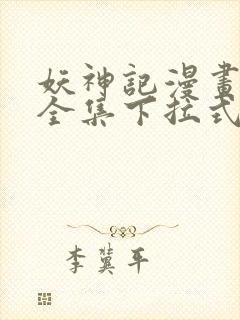 妖神記漫畫
全集下拉式
李冀平